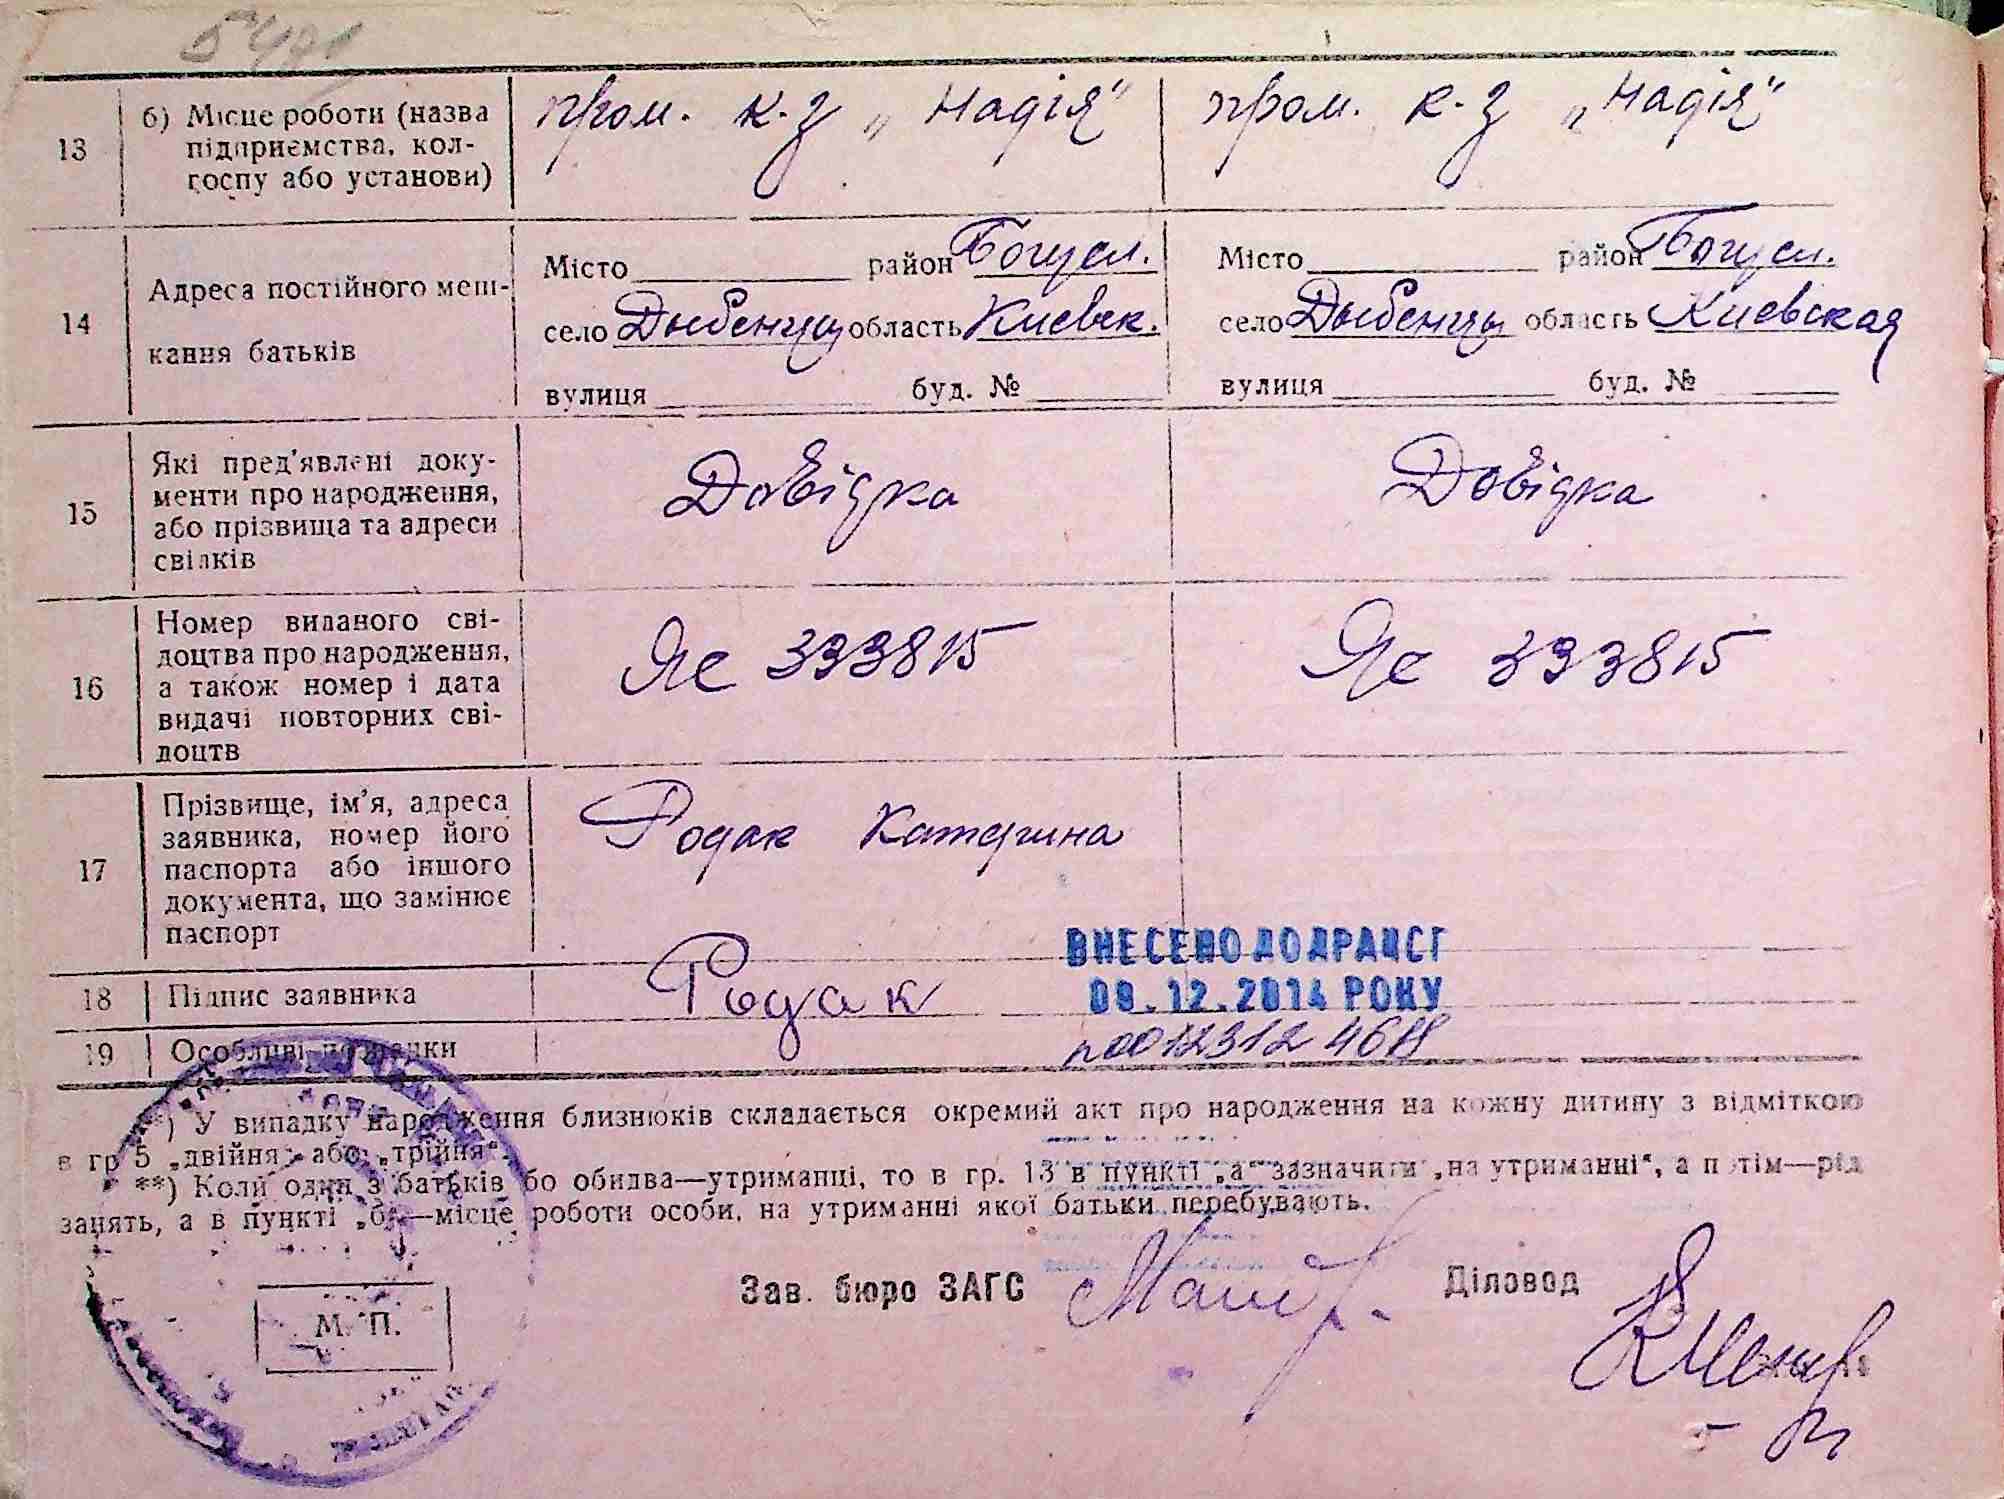 5471
13
б) Місце роботи (назва
підприємства, кол-
госпу або установи)
пром. к-з „Надія“
пром. к-з „Надія“
14
Адреса постійного меш-
кання батьків
Місто район Богусл.
село Дыбенцы область Киевск.
вулиця буд. №
Місто район Богусл.
село Дыбенцы область Киевская
вулиця буд. №
15
Які пред'явлені доку-
менти про народження,
або прізвища та адреси
свідків
Довідка
Довідка
16
Номер виданого сві-
доцтва про народження,
а також номер і дата
видачі повторних сві-
доцтв
ЯС 333815
ЯС 333815
17
Прізвище, ім'я, адреса
заявника, номер його
паспорта або іншого
документа, що замінює
паспорт
Родак Катерина
18
Підпис заявника
Родак
ВНЕСЕНО ДО ДРАЦСГ
09.12.2014 РОКУ
19
Особливі позначки
*) У випадку народження близнюків складається окремий акт про народження на кожну дитину з відміткою
в гр 5 „двійня“ або „трійня“.
**) Коли один з батьків або обидва—утриманці, то в гр. 13 в пункті „а“ зазначити „на утриманні“, а потім—рід
занять, а в пункті „б“—місце роботи особи, на утриманні якої батьки перебувають.
Зав. бюро ЗАГС
Діловод
М. П.